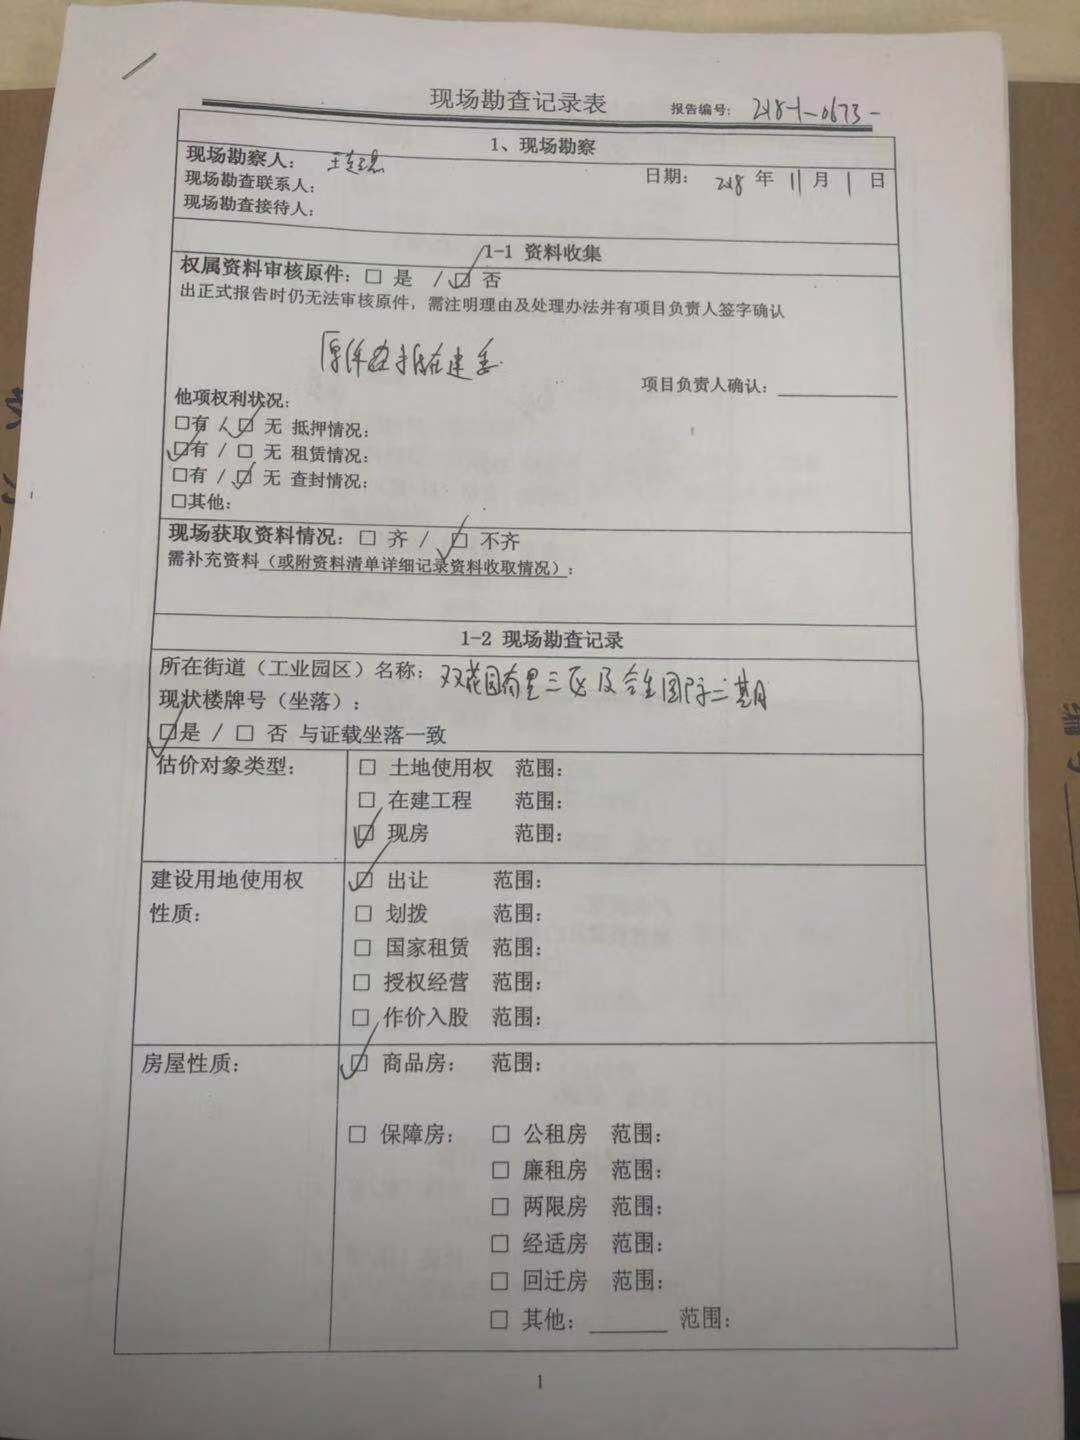 现场勘查记录表
报告编号: 2018-1-0673-
1、现场勘察
现场勘察人:
日期: 2018 年 11 月 1 日
现场勘查联系人:
现场勘查接待人:
1-1 资料收集
权属资料审核原件: □ 是 / ☑ 否
出正式报告时仍无法审核原件，需注明理由及处理办法并有项目负责人签字确认
原件 在建委
项目负责人确认:
他项权利状况:
□有 / ☑ 无 抵押情况:
☑有 / □ 无 租赁情况:
□有 / ☑ 无 查封情况:
□其他:
现场获取资料情况: □ 齐 / ☑ 不齐
需补充资料（或附资料清单详细记录资料收取情况）:
1-2 现场勘查记录
所在街道（工业园区）名称: 双花园南里三区及合生国际二期
现状楼牌号（坐落）:
☑是 / □ 否 与证载坐落一致
估价对象类型: □ 土地使用权 范围:
□ 在建工程 范围:
☑ 现房 范围:
建设用地使用权 ☑ 出让 范围:
性质: □ 划拨 范围:
□ 国家租赁 范围:
□ 授权经营 范围:
□ 作价入股 范围:
房屋性质: ☑ 商品房: 范围:
□ 保障房: □ 公租房 范围:
□ 廉租房 范围:
□ 两限房 范围:
□ 经适房 范围:
□ 回迁房 范围:
□ 其他:______ 范围:
1